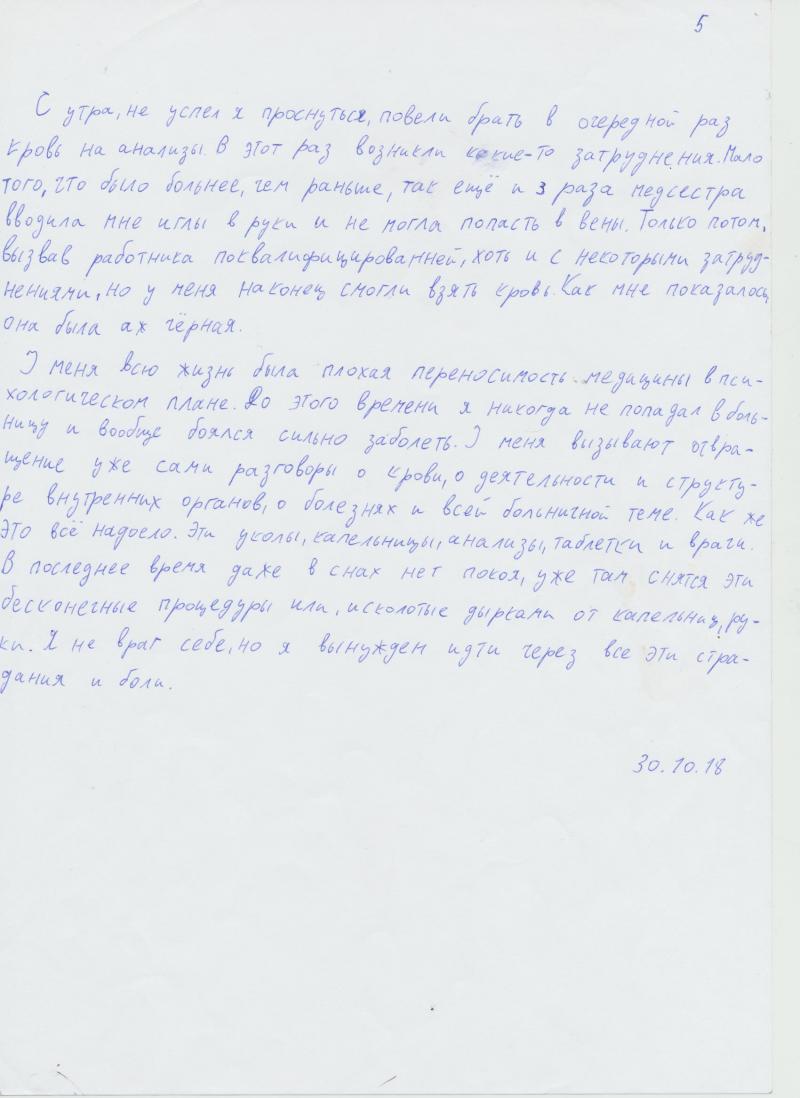 5
С утра, не успел я проснуться, повели брать в очередной раз
кровь на анализы. В этот раз возникли какие-то затруднения. Мало
того, что было больнее, чем раньше, так ещё и 3 раза медсестра
вводила мне иглы в руки и не могла попасть в вены. Только потом,
вызвав работника поквалифицированней, хоть и с некоторыми затруд-
нениями, но у меня наконец смогли взять кровь. Как мне показалось,
она была аж чёрная.
У меня всю жизнь была плохая переносимость медицины в пси-
хологическом плане. До этого времени я никогда не попадал в боль-
ницу и вообще боялся сильно заболеть. У меня вызывают отвра-
щение уже сами разговоры о крови, о деятельности и структу-
ре внутренних органов, о болезнях и всей больничной теме. Как же
это всё надоело. Эти уколы, капельницы, анализы, таблетки и врачи.
В последнее время даже в снах нет покоя, уже там снятся эти
бесконечные процедуры или, исколотые дырками от капельниц, ру-
ки. Я не враг себе, но я вынужден идти через все эти стра-
дания и боли.
30.10.18